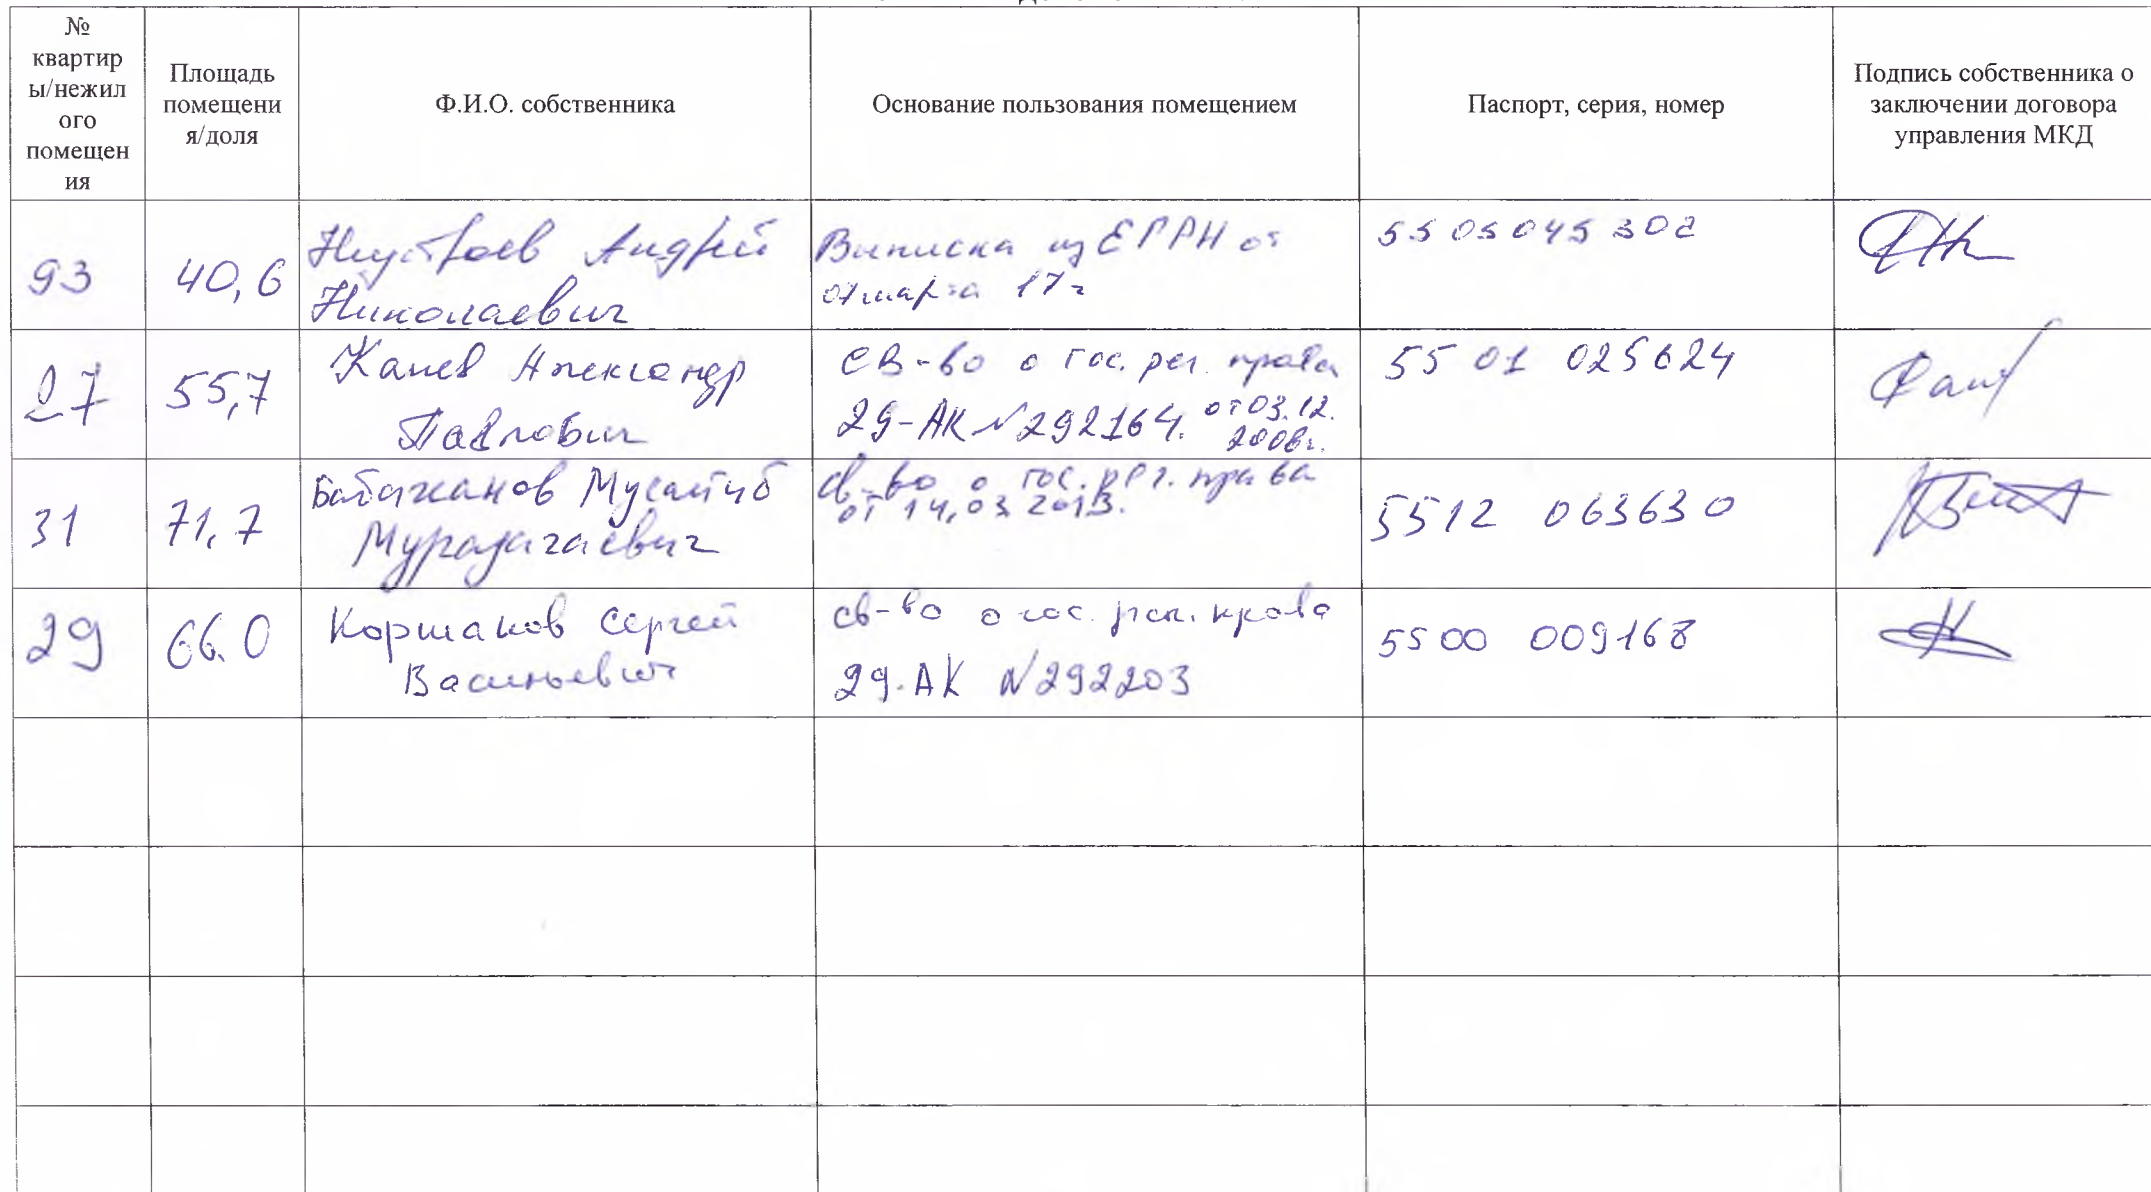 №
квартир
ы/нежил
ого
помещен
ия
Площадь
помещени
я/доля
Ф.И.О. собственника
Основание пользования помещением
Паспорт, серия, номер
Подпись собственника о
заключении договора
управления МКД
93
40,6
Неустроев Андрей
Николаевич
Выписка из ЕГРН от
марта 17г
5505045302
27
55,7
Канев Александр
Павлович
СВ-во о гос. рег. права
29-АК №292164. от 03.12.
2008г.
55 01 025624
31
71,7
Бабажанов
св-во о гос. рег. права
от 14,03 2013.
5512 063630
29
66.0
Коршаков Сергей
Васильевич
св-во о гос. рег. права
29-АК №292203
5500 009168